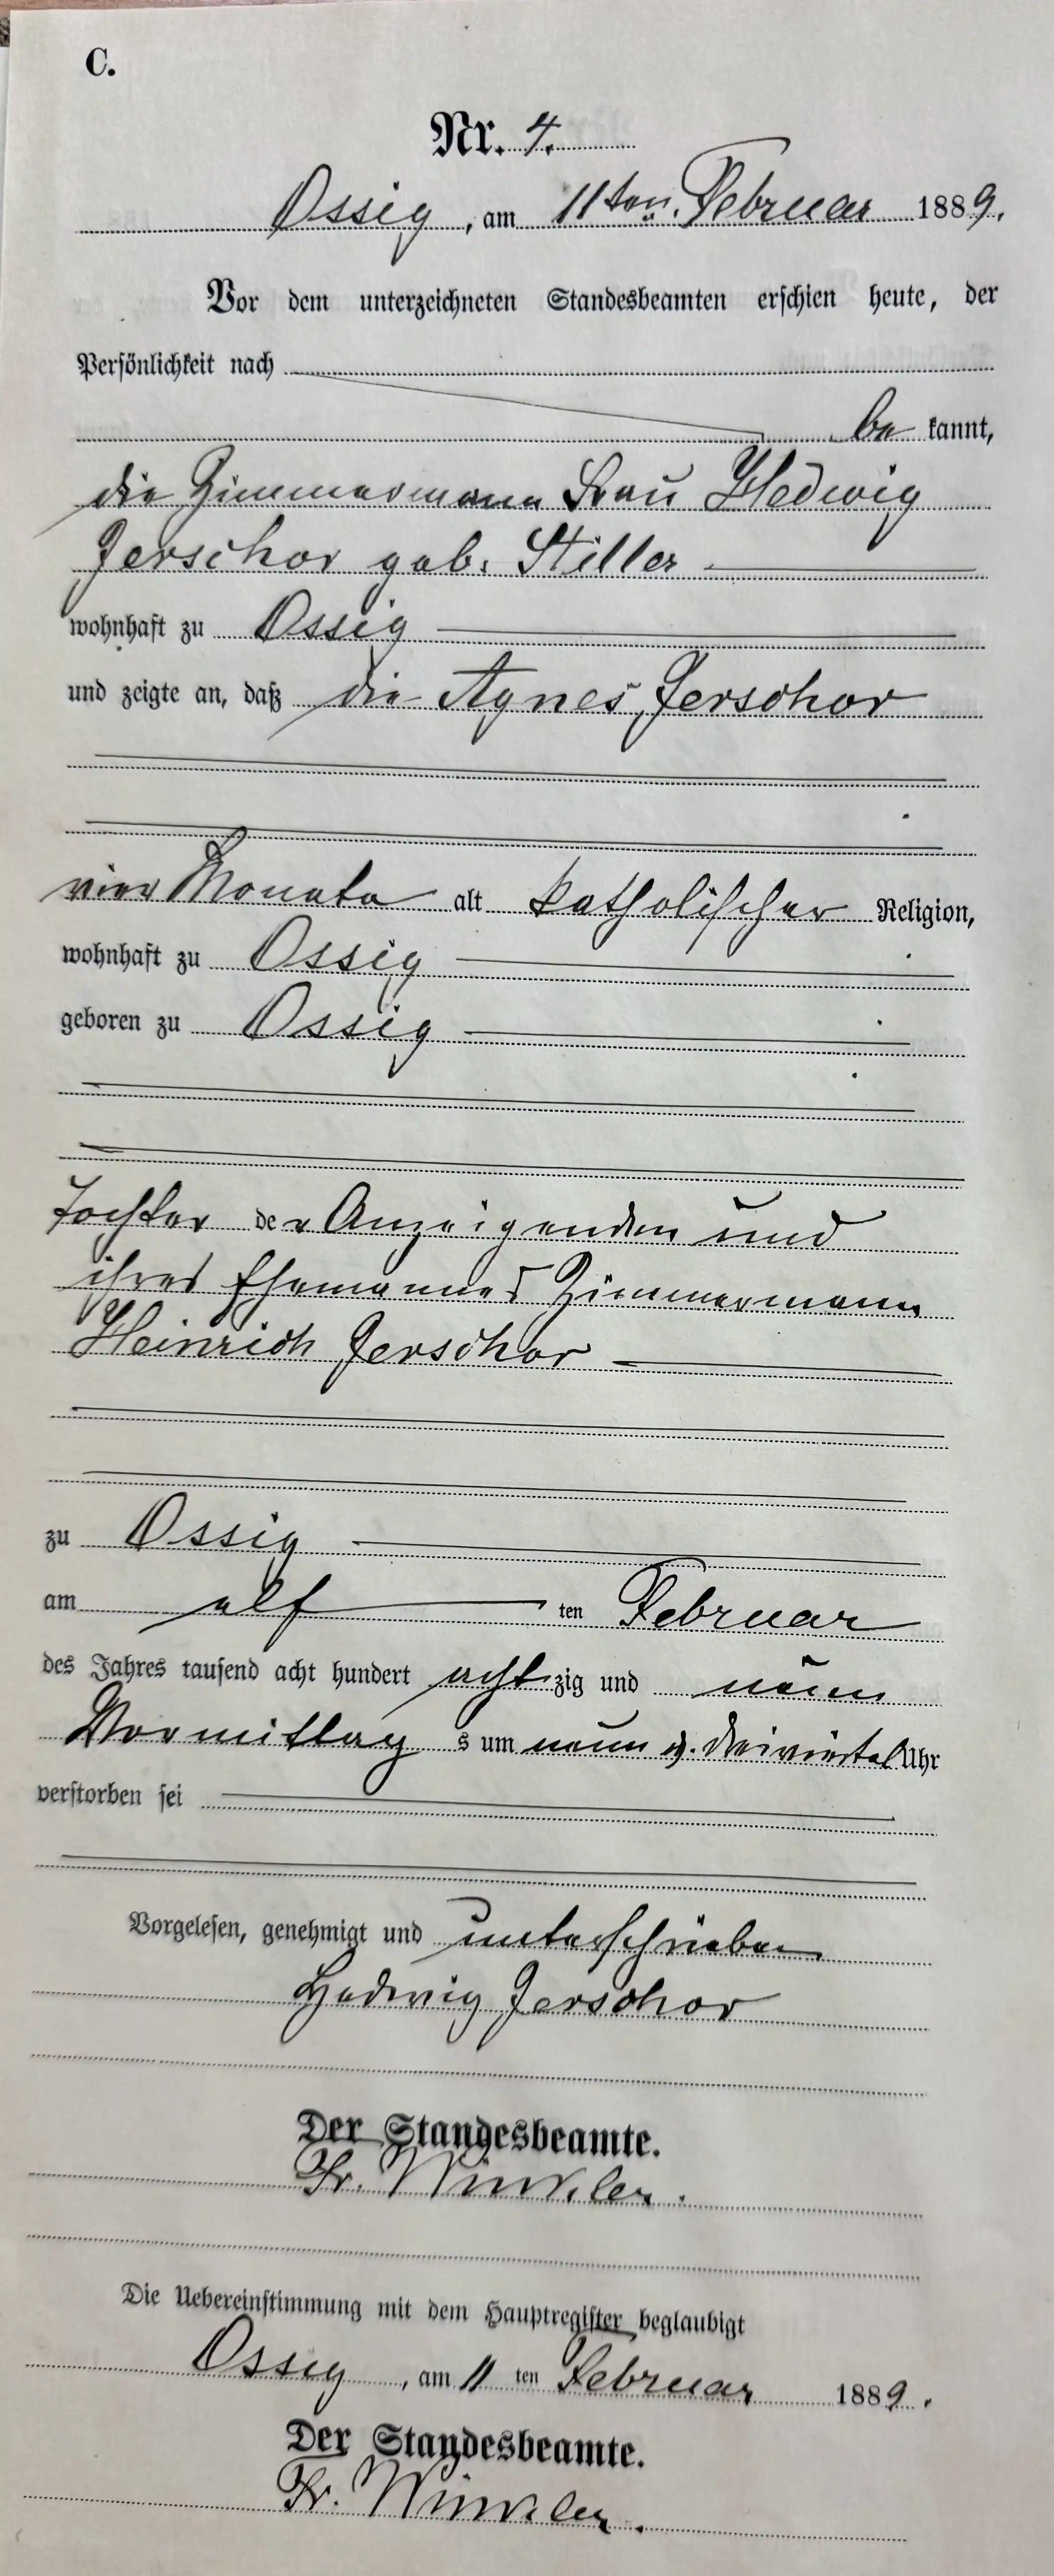 C.
Nr. 4.
Ossig, am 11ten Februar 1889.
Vor dem unterzeichneten Standesbeamten erschien heute, der
Persönlichkeit nach
be kannt,
die Zimmermann Frau Hedwig
Jerschor geb. Stiller
wohnhaft zu Ossig
und zeigte an, daß die Agnes Jerschor
vier Monate alt katholischer Religion,
wohnhaft zu Ossig
geboren zu Ossig
Tochter der Anzeigenden und
ihres Ehemannes Zimmermann
Heinrich Jerschor
zu Ossig
am elf ten Februar
des Jahres tausend acht hundert acht zig und neun
Vormittag s um neun u. dreiviertel Uhr
verstorben sei
Vorgelesen, genehmigt und unterschrieben
Hedwig Jerschor
Der Standesbeamte.
Fr. Winkler.
Die Uebereinstimmung mit dem Hauptregister beglaubigt
Ossig, am 11 ten Februar 1889.
Der Standesbeamte.
Fr. Winkler.